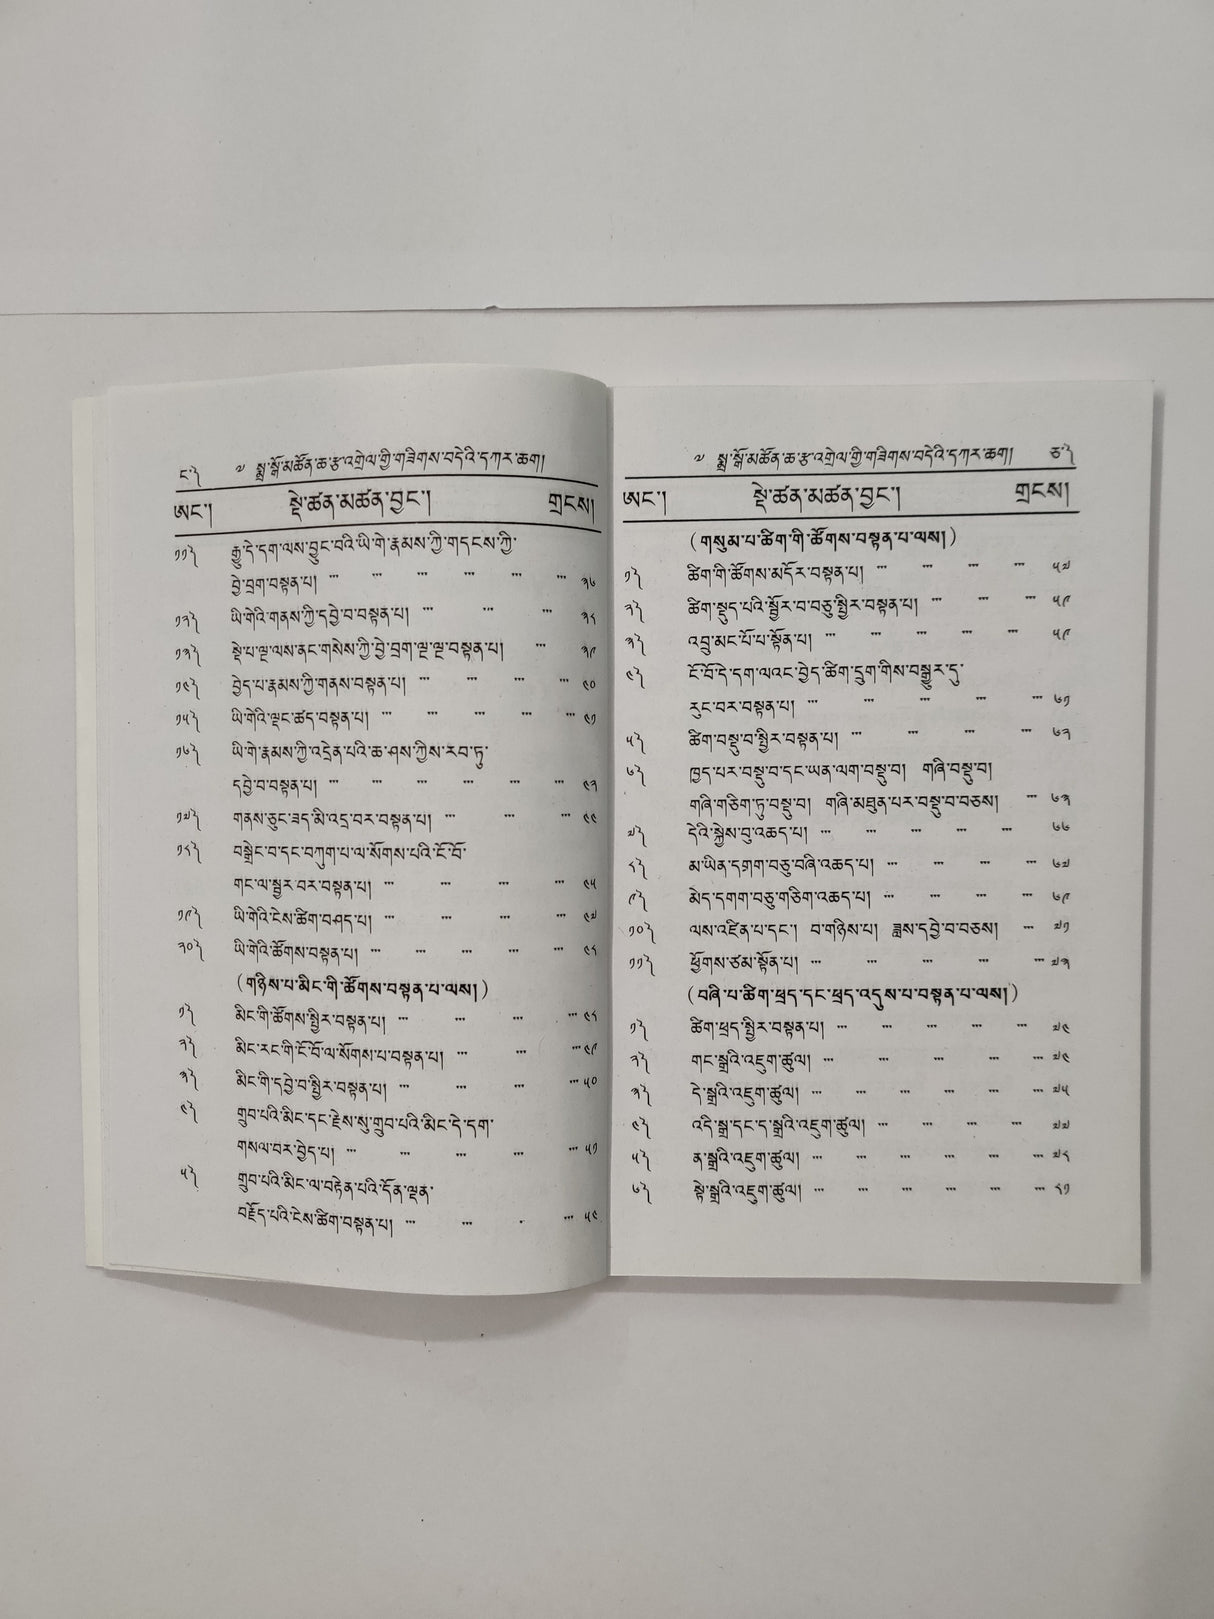 ང་༽ ༧ སྨྲ་སྒོ་མཚོན་ཆ་རྩ་འགྲེལ་གྱི་གཟིགས་བདེའི་དཀར་ཆག།
ཨང་། སྡེ་ཚན་མཚན་བྱང་། གྲངས།
༡༡༽ རྒྱུ་དེ་དག་ལས་བྱུང་བའི་ཡི་གེ་རྣམས་ཀྱི་གདངས་ཀྱི་
བྱེ་བྲག་བསྟན་པ། ... ... ... ... ... ... ༣༦
༡༢༽ ཡི་གེའི་གནས་ཀྱི་དབྱེ་བ་བསྟན་པ། ... ... ... ༣༨
༡༣༽ སྡེ་པ་ལྔ་ལས་ནང་གསེས་ཀྱི་བྱེ་བྲག་ལྔ་ལྔ་བསྟན་པ། ... ༣༩
༡༤༽ བྱེད་པ་རྣམས་ཀྱི་གནས་བསྟན་པ། ... ... ... ... ༤༠
༡༥༽ ཡི་གེའི་ལྡང་ཚད་བསྟན་པ། ... ... ... ... ... ༤༡
༡༦༽ ཡི་གེ་རྣམས་ཀྱི་འདྲེན་པའི་ཆ་ཤས་ཀྱིས་རབ་ཏུ་
དབྱེ་བ་བསྟན་པ། ... ... ... ... ... ... ༤༢
༡༧༽ གནས་ཅུང་ཟད་མི་འདྲ་བར་བསྟན་པ། ... ... ... ༤༤
༡༨༽ བསྒྲེང་བ་དང་བཀུག་པ་ལ་སོགས་པའི་ངོ་བོ་
གང་ལ་སྦྱར་བར་བསྟན་པ། ... ... ... ... ༤༥
༡༩༽ ཡི་གེའི་ངེས་ཚིག་བཤད་པ། ... ... ... ... ༤༧
༢༠༽ ཡི་གེའི་ཚོགས་བསྟན་པ། ... ... ... ... ... ༤༨
(གཉིས་པ་མིང་གི་ཚོགས་བསྟན་པ་ལས།)
༡༽ མིང་གི་ཚོགས་སྤྱིར་བསྟན་པ། ... ... ... ... ༤༨
༢༽ མིང་རང་གི་ངོ་བོ་ལ་སོགས་པ་བསྟན་པ། ... ... ... ༤༩
༣༽ མིང་གི་དབྱེ་བ་སྤྱིར་བསྟན་པ། ... ... ... ... ༥༠
༤༽ གྲུབ་པའི་མིང་དང་རྗེས་སུ་གྲུབ་པའི་མིང་དེ་དག་
གསལ་བར་བྱེད་པ། ... ... ... ... ... ༥༡
༥༽ གྲུབ་པའི་མིང་ལ་བརྟེན་པའི་དོན་ལྡན་
བརྗོད་པའི་ངེས་ཚིག་བསྟན་པ། ... ... . ... ༥༤
༧ སྨྲ་སྒོ་མཚོན་ཆ་རྩ་འགྲེལ་གྱི་གཟིགས་བདེའི་དཀར་ཆག། ཅ་༽
ཨང་། སྡེ་ཚན་མཚན་བྱང་། གྲངས།
(གསུམ་པ་ཚིག་གི་ཚོགས་བསྟན་པ་ལས།)
༡༽ ཚིག་གི་ཚོགས་མདོར་བསྟན་པ། ... ... ... ... ༥༧
༢༽ ཚིག་སྡུད་པའི་སྦྱོར་བ་བཅུ་སྤྱིར་བསྟན་པ། ... ... ... ༥༩
༣༽ འབྲུ་མང་པོ་པ་སྟོན་པ། ... ... ... ... ... ༥༩
༤༽ ངོ་བོ་དེ་དག་ལའང་བྱེད་ཚིག་དྲུག་གིས་བསྒྱུར་དུ་
རུང་བར་བསྟན་པ། ... ... ... ... ... ༦༡
༥༽ ཚིག་བསྡུ་བ་སྤྱིར་བསྟན་པ། ... ... ... ... ༦༢
༦༽ ཁྱད་པར་བསྡུ་བ་དང་ཡན་ལག་བསྡུ་བ། གཞི་བསྡུ་བ།
གཞི་གཅིག་ཏུ་བསྡུ་བ། གཞི་མཐུན་པར་བསྡུ་བ་བཅས། ... ༦༣
༧༽ དེའི་སྐྱེས་བུ་འཆད་པ། ... ... ... ... ... ༦༦
༨༽ མ་ཡིན་དགག་བཅུ་བཞི་འཆད་པ། ... ... ... ... ༦༧
༩༽ མེད་དགག་བཅུ་གཅིག་འཆད་པ། ... ... ... ... ༦༩
༡༠༽ ལས་འཛིན་པ་དང་། བ་གཉིས་པ། ཟླས་དབྱེ་བ་བཅས། ... ༧༡
༡༡༽ ཕྱོགས་ཙམ་སྟོན་པ། ... ... ... ... ... ... ༧༣
(བཞི་པ་ཚིག་ཕྲད་དང་ཕྲད་འདུས་པ་བསྟན་པ་ལས།)
༡༽ ཚིག་ཕྲད་སྤྱིར་བསྟན་པ། ... ... ... ... ... ༧༤
༢༽ གང་སྒྲའི་འཇུག་ཚུལ། ... ... ... ... ... ༧༤
༣༽ དེ་སྒྲའི་འཇུག་ཚུལ། ... ... ... ... ... ... ༧༥
༤༽ འདི་སྒྲ་དང་ད་སྒྲའི་འཇུག་ཚུལ། ... ... ... ... ༧༧
༥༽ ན་སྒྲའི་འཇུག་ཚུལ། ... ... ... ... ... ... ༧༨
༦༽ སྟེ་སྒྲའི་འཇུག་ཚུལ། ... ... ... ... ... ... ༨༡